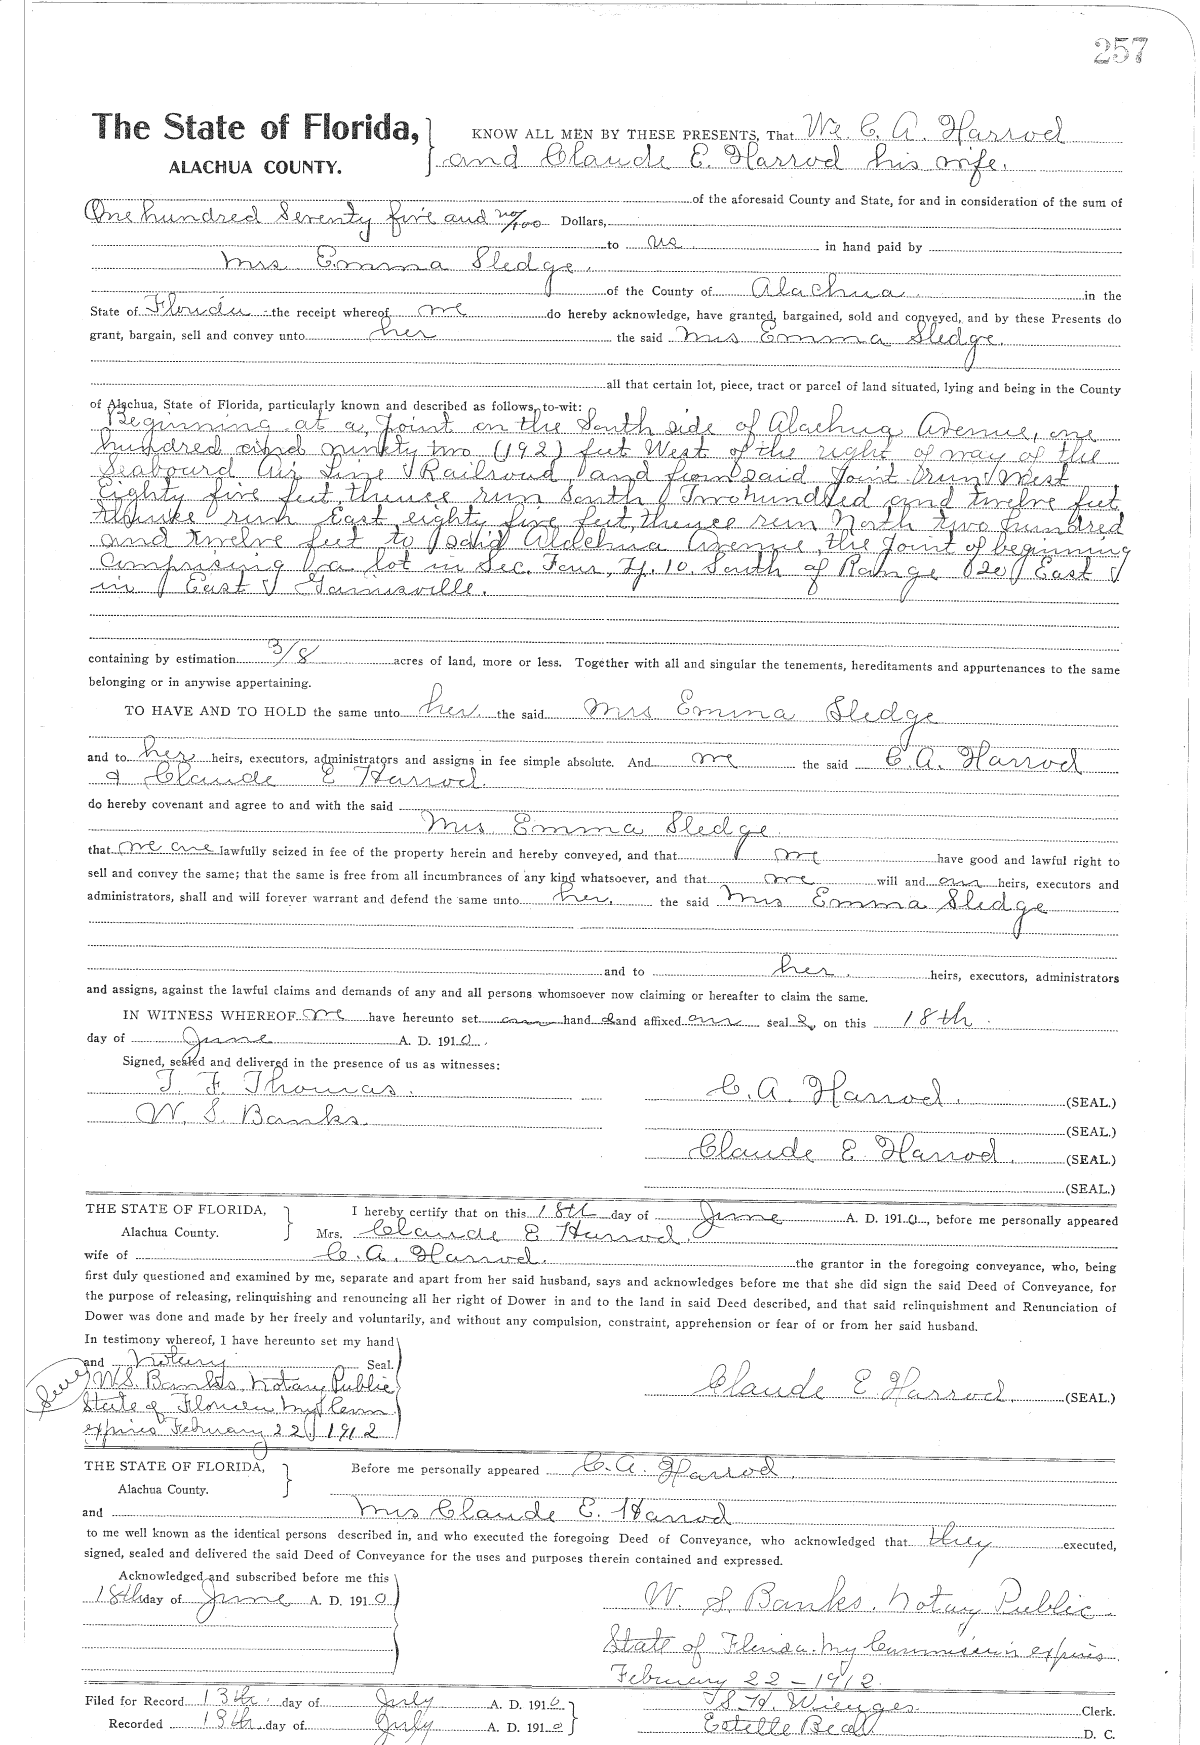 257
The State of Florida,
ALACHUA COUNTY.
KNOW ALL MEN BY THESE PRESENTS, That We C. A. Harrod
and Claude E. Harrod his wife.
of the aforesaid County and State, for and in consideration of the sum of
One hundred Seventy five and no/100 Dollars,
to us in hand paid by
Mrs Emma Sledge.
of the County of Alachua in the
State of Florida the receipt whereof we do hereby acknowledge, have granted, bargained, sold and conveyed, and by these Presents do
grant, bargain, sell and convey unto her the said Mrs Emma Sledge.
all that certain lot, piece, tract or parcel of land situated, lying and being in the County
of Alachua, State of Florida, particularly known and described as follows, to-wit:
Beginning at a Point on the South side of Alachua Avenue, one
hundred and ninety two (192) feet West of the right of way of the
Seaboard Air Line Railroad and from said Point run West
Eighty five feet, thence run South Two hundred and twelve feet
thence run East eighty five feet, thence run North two hundred
and twelve feet to said Alachua Avenue, the Point of beginning
Comprising a lot in Sec. Four, Tp. 10. South of Range 20 East
in East Gainesville.
containing by estimation 3/8 acres of land, more or less. Together with all and singular the tenements, hereditaments and appurtenances to the same
belonging or in anywise appertaining.
TO HAVE AND TO HOLD the same unto her the said Mrs Emma Sledge
and to her heirs, executors, administrators and assigns in fee simple absolute. And we the said C. A. Harrod
& Claude E Harrod.
do hereby covenant and agree to and with the said
Mrs Emma Sledge
that we are lawfully seized in fee of the property herein and hereby conveyed, and that we have good and lawful right to
sell and convey the same; that the same is free from all incumbrances of any kind whatsoever, and that we will and our heirs, executors and
administrators, shall and will forever warrant and defend the same unto her, the said Mrs Emma Sledge
and to her. heirs, executors, administrators
and assigns, against the lawful claims and demands of any and all persons whomsoever now claiming or hereafter to claim the same.
IN WITNESS WHEREOF we have hereunto set our hand s and affixed our seal s, on this 18th
day of June A. D. 1910.
Signed, sealed and delivered in the presence of us as witnesses:
T. F. Thomas.
C. A. Harrod. (SEAL.)
W. S. Banks.
(SEAL.)
Claude E Harrod. (SEAL.)
(SEAL.)
THE STATE OF FLORIDA,
Alachua County.
I hereby certify that on this 18th day of June A. D. 1910, before me personally appeared
Mrs. Claude E Harrod.
wife of C. A. Harrod. the grantor in the foregoing conveyance, who, being
first duly questioned and examined by me, separate and apart from her said husband, says and acknowledges before me that she did sign the said Deed of Conveyance, for
the purpose of releasing, relinquishing and renouncing all her right of Dower in and to the land in said Deed described, and that said relinquishment and Renunciation of
Dower was done and made by her freely and voluntarily, and without any compulsion, constraint, apprehension or fear of or from her said husband.
In testimony whereof, I have hereunto set my hand
and Notary Seal.
Seal
W. S. Banks, Notary Public
State of Florida My Comm
expires February 22, 1912
Claude E Harrod. (SEAL.)
THE STATE OF FLORIDA,
Alachua County.
Before me personally appeared C. A. Harrod.
and Mrs Claude E. Harrod
to me well known as the identical persons described in, and who executed the foregoing Deed of Conveyance, who acknowledged that they executed,
signed, sealed and delivered the said Deed of Conveyance for the uses and purposes therein contained and expressed.
Acknowledged and subscribed before me this
18th day of June A. D. 1910
W. S. Banks. Notary Public
State of Florida. My Commission expires
February 22 - 1912.
Filed for Record 13th day of July A. D. 1910
S. H. Wienges Clerk.
Recorded 13th day of July A. D. 1910
Estelle Beall D. C.